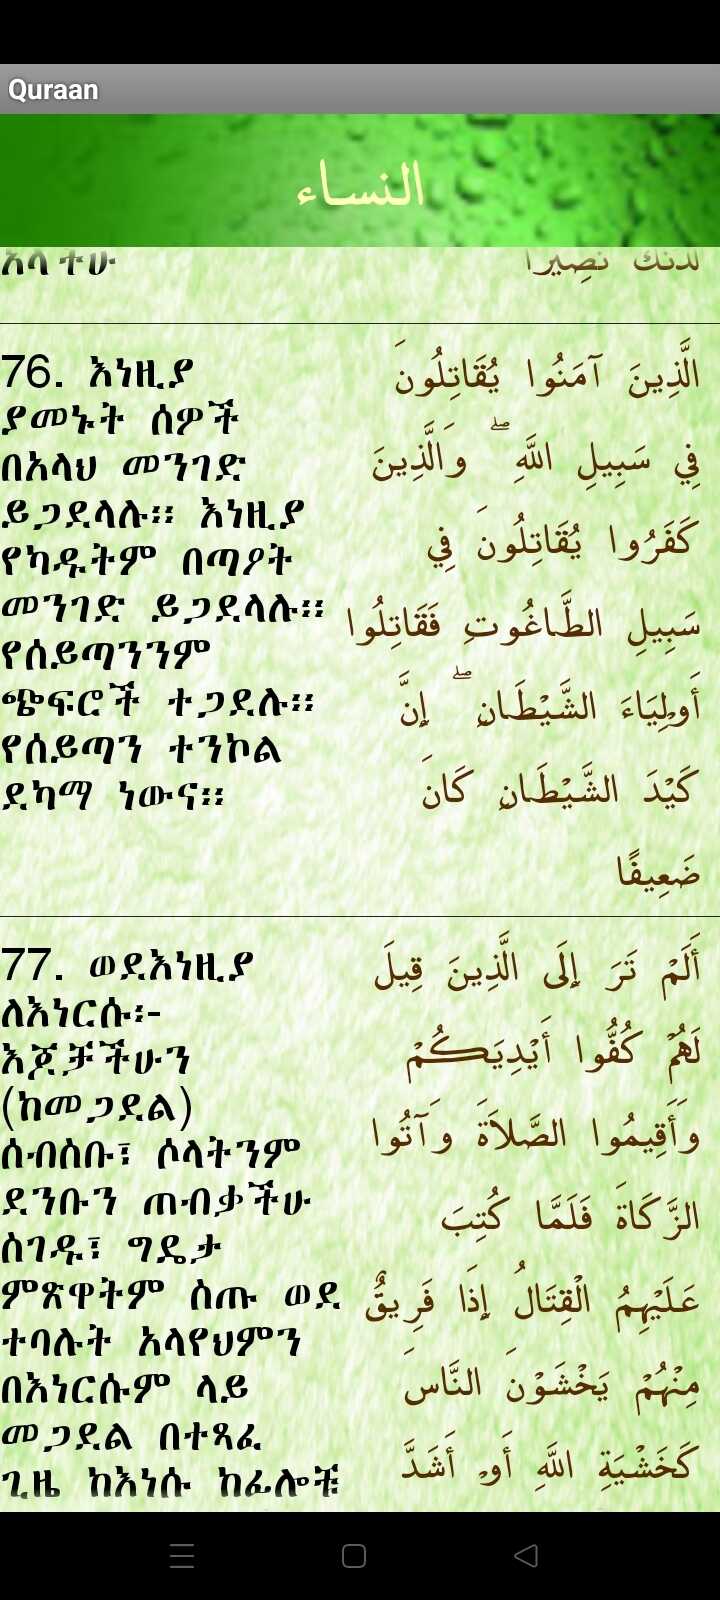 Quraan
النساء
እነዚያ
76. እነዚያ
ያመኑት ሰዎች
በአላህ መንገድ
ይጋደላሉ፡፡ እነዚያ
የካዱትም በጣዖት
መንገድ ይጋደላሉ፡፡
የሰይጣንንም
ጭፍሮች ተጋደሉ፡፡
የሰይጣን ተንኮል
ደካማ ነውና፡፡
الَّذِينَ آمَنُوا يُقَاتِلُونَ
فِي سَبِيلِ اللَّهِ ۖ وَالَّذِينَ
كَفَرُوا يُقَاتِلُونَ فِي
سَبِيلِ الطَّاغُوتِ فَقَاتِلُوا
أَوْلِيَاءَ الشَّيْطَانِ ۖ إِنَّ
كَيْدَ الشَّيْطَانِ كَانَ
ضَعِيفًا
77. ወደእነዚያ
ለእነርሱ፡-
እጆቻችሁን
(ከመጋደል)
ሰብስቡ፣ ሶላትንም
ደንቡን ጠብቃችሁ
ስገዱ፣ ግዴታ
ምጽዋትም ስጡ ወደ
ተባሉት አላየህምን
በእነርሱም ላይ
መጋደል በተጻፈ
ጊዜ ከእነሱ ከፊሎቹ
أَلَمْ تَرَ إِلَى الَّذِينَ قِيلَ
لَهُمْ كُفُّوا أَيْدِيَكُمْ
وَأَقِيمُوا الصَّلَاةَ وَآتُوا
الزَّكَاةَ فَلَمَّا كُتِبَ
عَلَيْهِمُ الْقِتَالُ إِذَا فَرِيقٌ
مِنْهُمْ يَخْشَوْنَ النَّاسَ
كَخَشْيَةِ اللَّهِ أَوْ أَشَدَّ